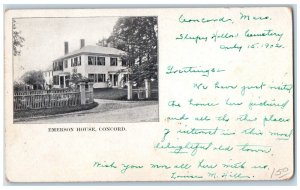 Concord, Mass.
Sleepy Hollow Cemetery
July 15, 1902.
Greetings-
We have just visited
the house here pictured
and all the other places
of interest in this most
delightful old town.
Wish you were all here with us.
Louise M.
EMERSON HOUSE, CONCORD.
150